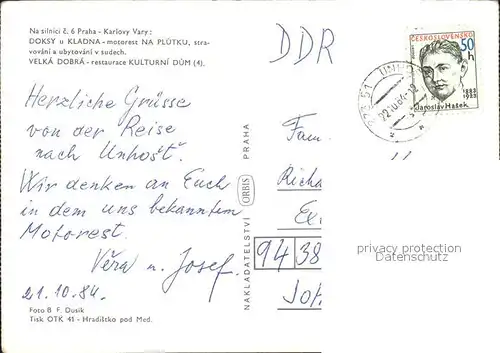 Na silnici č. 6 Praha - Karlovy Vary:
DOKSY u KLADNA - motorest NA PLŮTKU, stra-
vování a ubytování v sudech.
VELKÁ DOBRÁ - restaurace KULTURNÍ DŮM (4).
DDR
ČESKOSLOVENSKO
50 h
1883
1923
Jaroslav Hašek
273 51
22.10.84-12
Herzliche Grüsse
von der Reise
nach Unhošť.
Wir denken an Euch
in dem uns bekanntem
Motorest.
Věra u. Josef.
21.10.84.
Foto B. F. Dusík
Tisk OTK 41 - Hradištko pod Med.
NAKLADATELSTVÍ ORBIS PRAHA
Fam.
Richa
94 38
Joh
privacy protection
Datenschutz